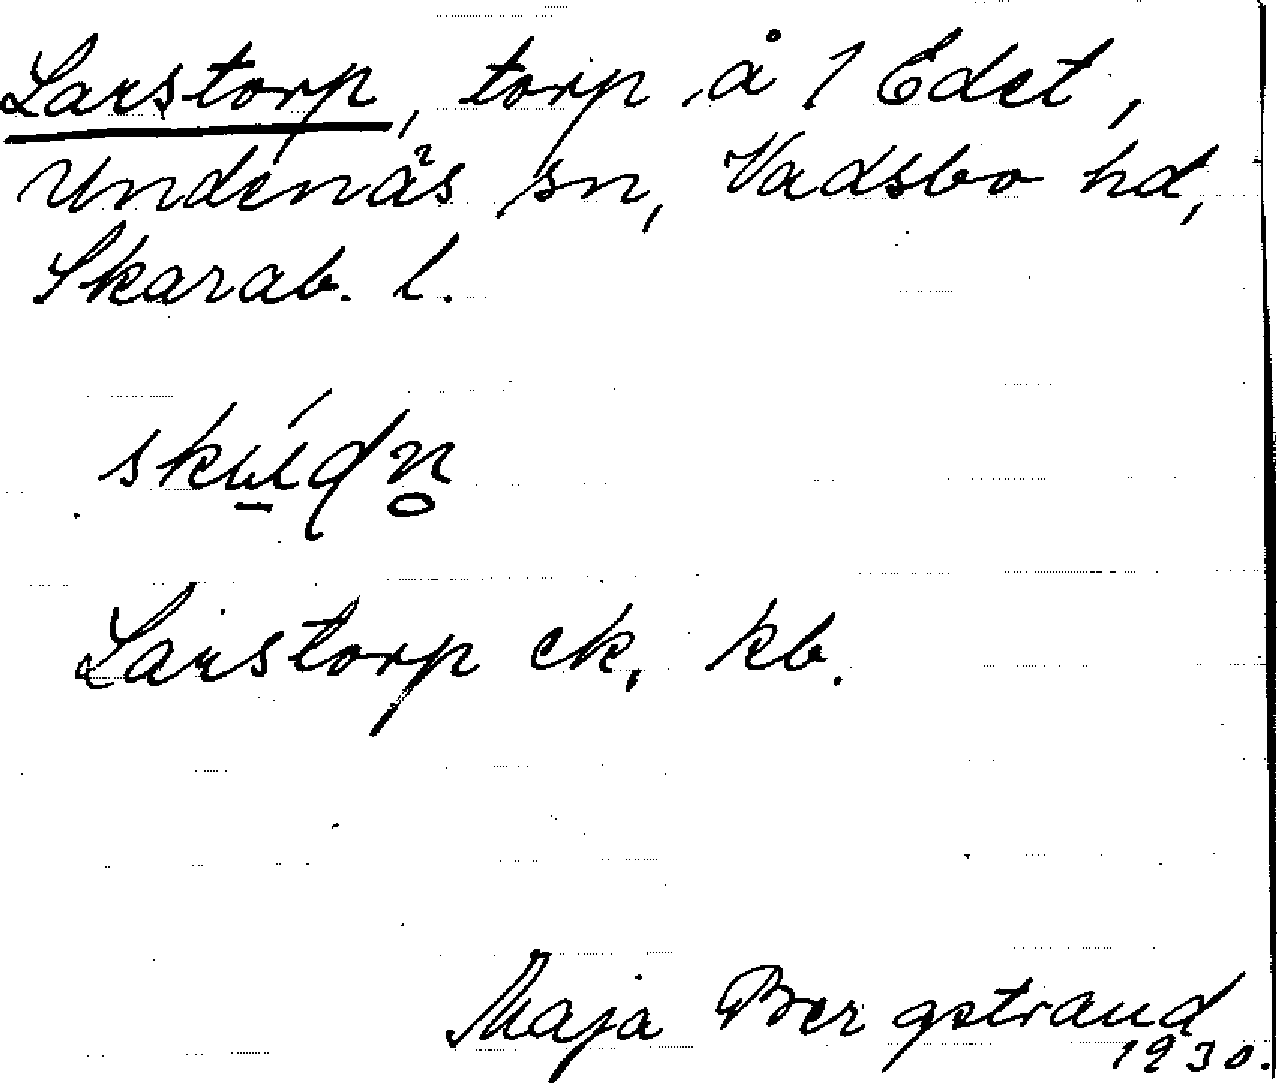 Larstorp, torp å 1 Edet,
Undenäs sn, Vadsbo hd,
Skarab. l.
Larstorp ek, kb.
Maja Bergstrand
1930.